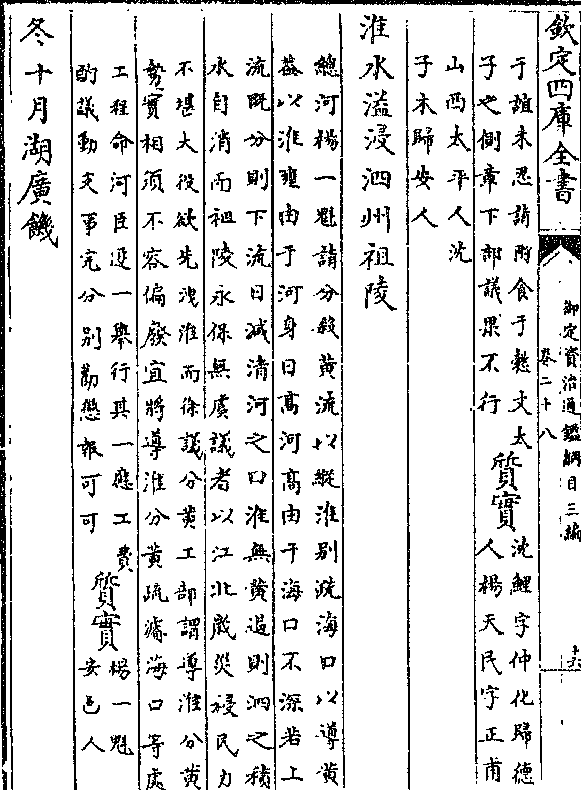 欽定四庫全書
御定資治通鑑綱目三編
卷二十八
十六
于誼未忍請附食于懿文太
子之側章下部議果不行
質實
沈鯉字仲化歸德
人楊天民字正甫
山西太平人沈
子木歸安人
淮水溢浸泗州祖陵
總河楊一魁請分殺黃流以縱淮别疏海口以導黃
葢以淮壅由于河身日高河高由于海口不深若上
流既分則下流日減清河之口淮無黃遏則泗之積
水自消而祖陵永保無虞議者以江北歲災祲民力
不堪大役欲先洩淮而徐議分黃工部謂導淮分黃
勢實相須不容偏廢宜將導淮分黃疏濬海口等處
工程命河臣逐一舉行其一應工費
酌議動支事完分别勸懲報可可
質實
楊一魁
安邑人
冬十月湖廣饑